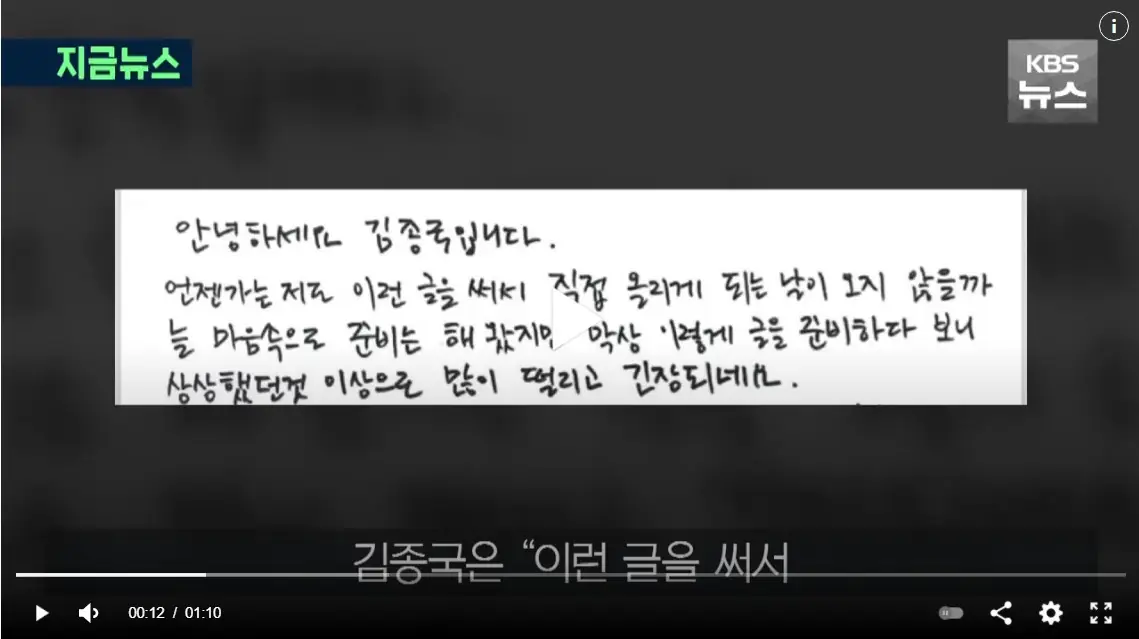 지금뉴스
KBS
뉴스
안녕하세요 김종국입니다.
언젠가는 저도 이런 글을 써서 직접 올리게 되는 날이 오지 않을까
늘 마음속으로 준비는 해 왔지만 막상 이렇게 글을 준비하다 보니
상상했던것 이상으로 많이 떨리고 긴장되네요.
김종국은 “이런 글을 써서
00:12 / 01:10